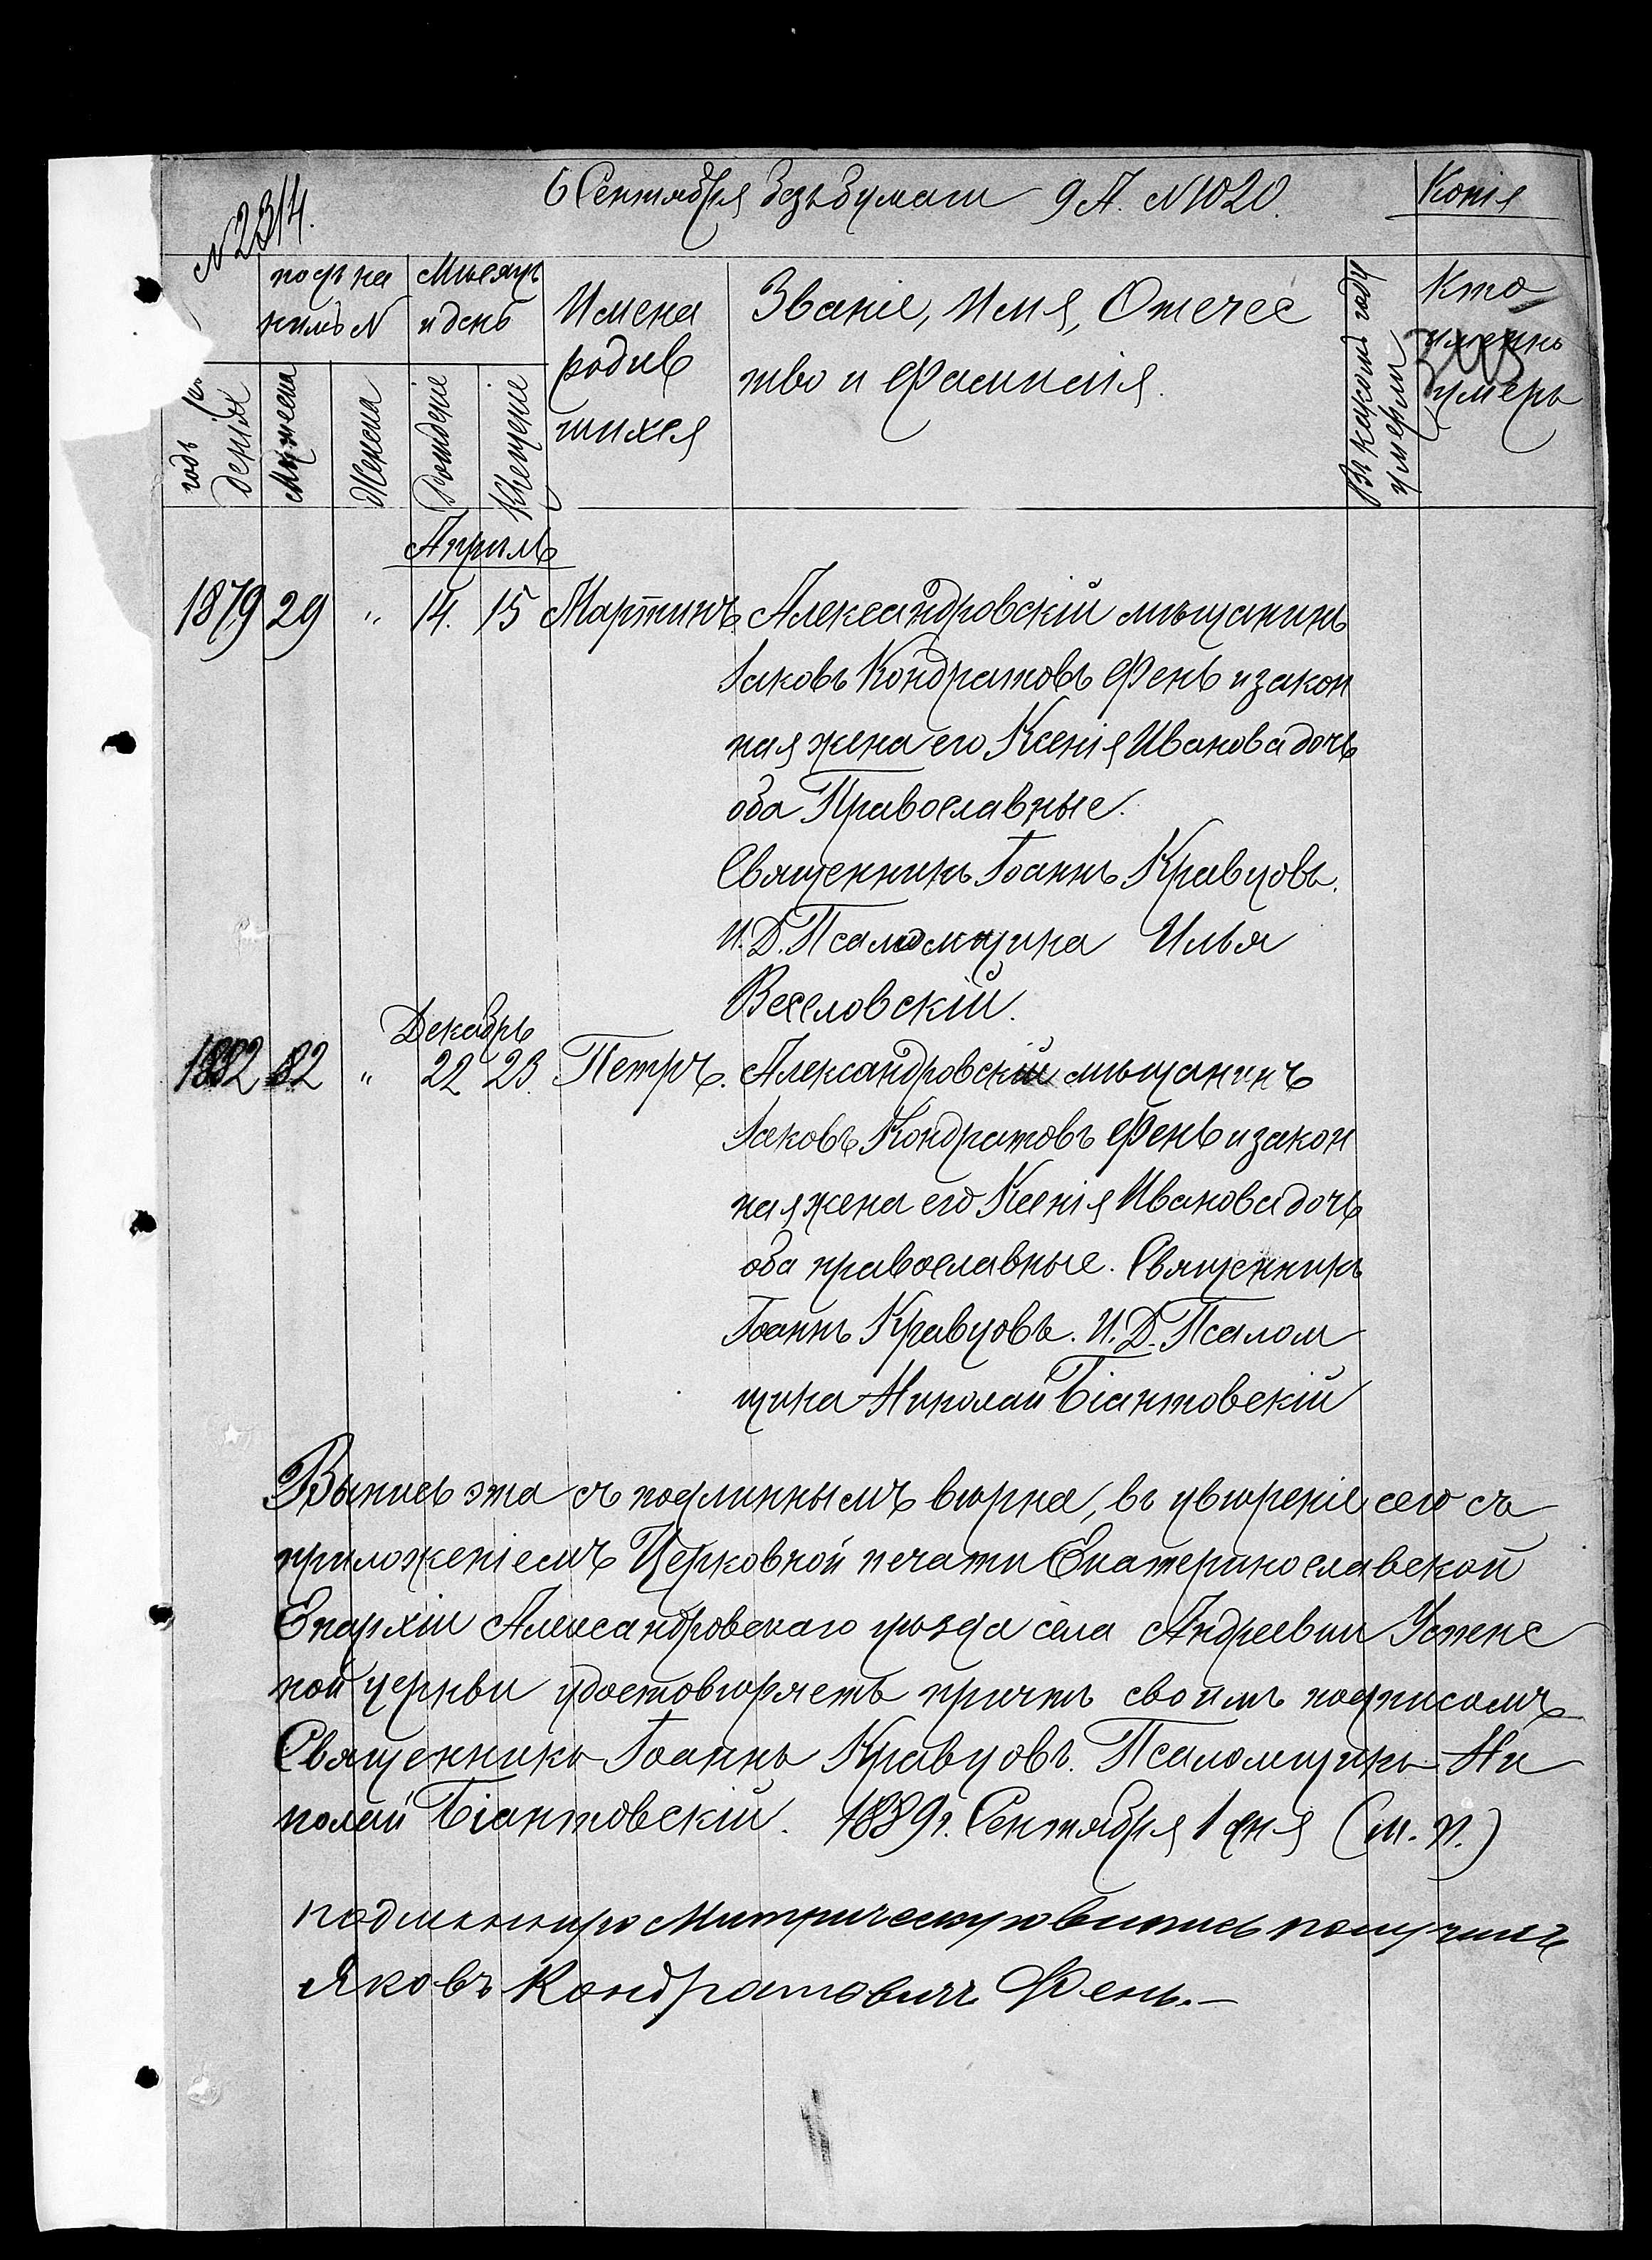 6 Сентября безъ бумаги 9 А. N 1020. Копія
N 2314.
годъ рож
денія
подъ ка
кимъ N
Мужеска
Женска
Мѣсяцъ
и день
Рожденіе
Крещеніе
Имена
родив
шихся
Званіе, Имя, Отечес
тво и Фамилія.
Въ какомъ году
умерли
Кто
именно
умеръ
Апрѣль
1879 29 " 14. 15 Мартинъ. Александровскій мѣщанинъ
Іаковъ Кондратовъ Фень и закон
ная жена его Ксенія Иванова дочь
оба Православные.
Священникъ Іоаннъ Кравцовъ.
И. Д. Псаломщика Илья
Веселовскій.
Декабрь
1882 82 " 22 23. Петръ. Александровскій мѣщанинъ
Іаковъ Кондратовъ Фень и закон
ная жена его Ксенія Иванова дочь
оба православные. Священникъ
Іоаннъ Кравцовъ. И. Д. Псалом
щика Николай Біантовскій
Выпись эта съ подлиннымъ вѣрна, въ увѣреніе сего съ
приложеніемъ Церковной печати Екатеринославской
Епархіи Александровскаго уѣзда села Андреевки Успенс
кой церкви удостовѣряетъ причтъ своимъ подписомъ
Священникъ Іоаннъ Кравцовъ. Псаломщикъ Ни
колай Біантовскій. 1889 г. Сентября 1 дня (м. п.)
подлинную Митрическую випись получилъ
Яковъ Кондратовичъ Фень.—